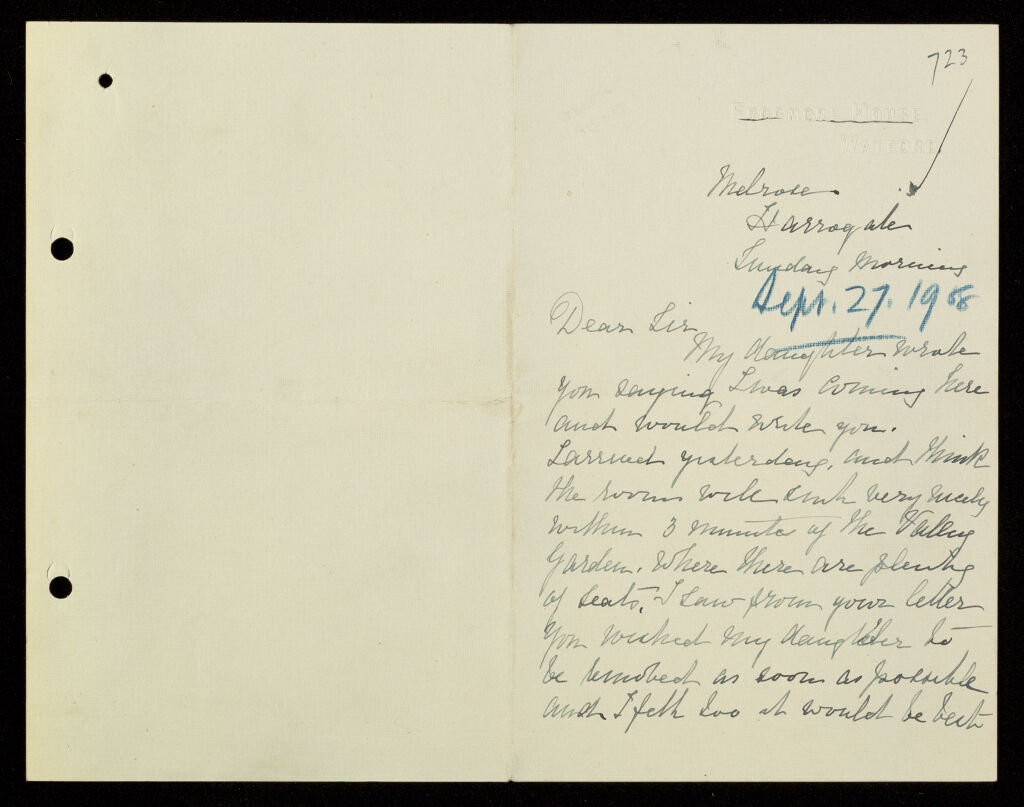 723
Frogmore House.
Watford.
Melrose
Harrogate
Sunday Morning
Sept. 27. 1908
Dear Sir
My daughter wrote
you saying I was coming here
and would write you.
I arrived yesterday, and think
the rooms will suit very nicely
within 3 minutes of the Valley
Garden. Where there are plenty
of seats. I saw from your letter
you wished my daughter to
be removed as soon as possible
and I felt too it would be best